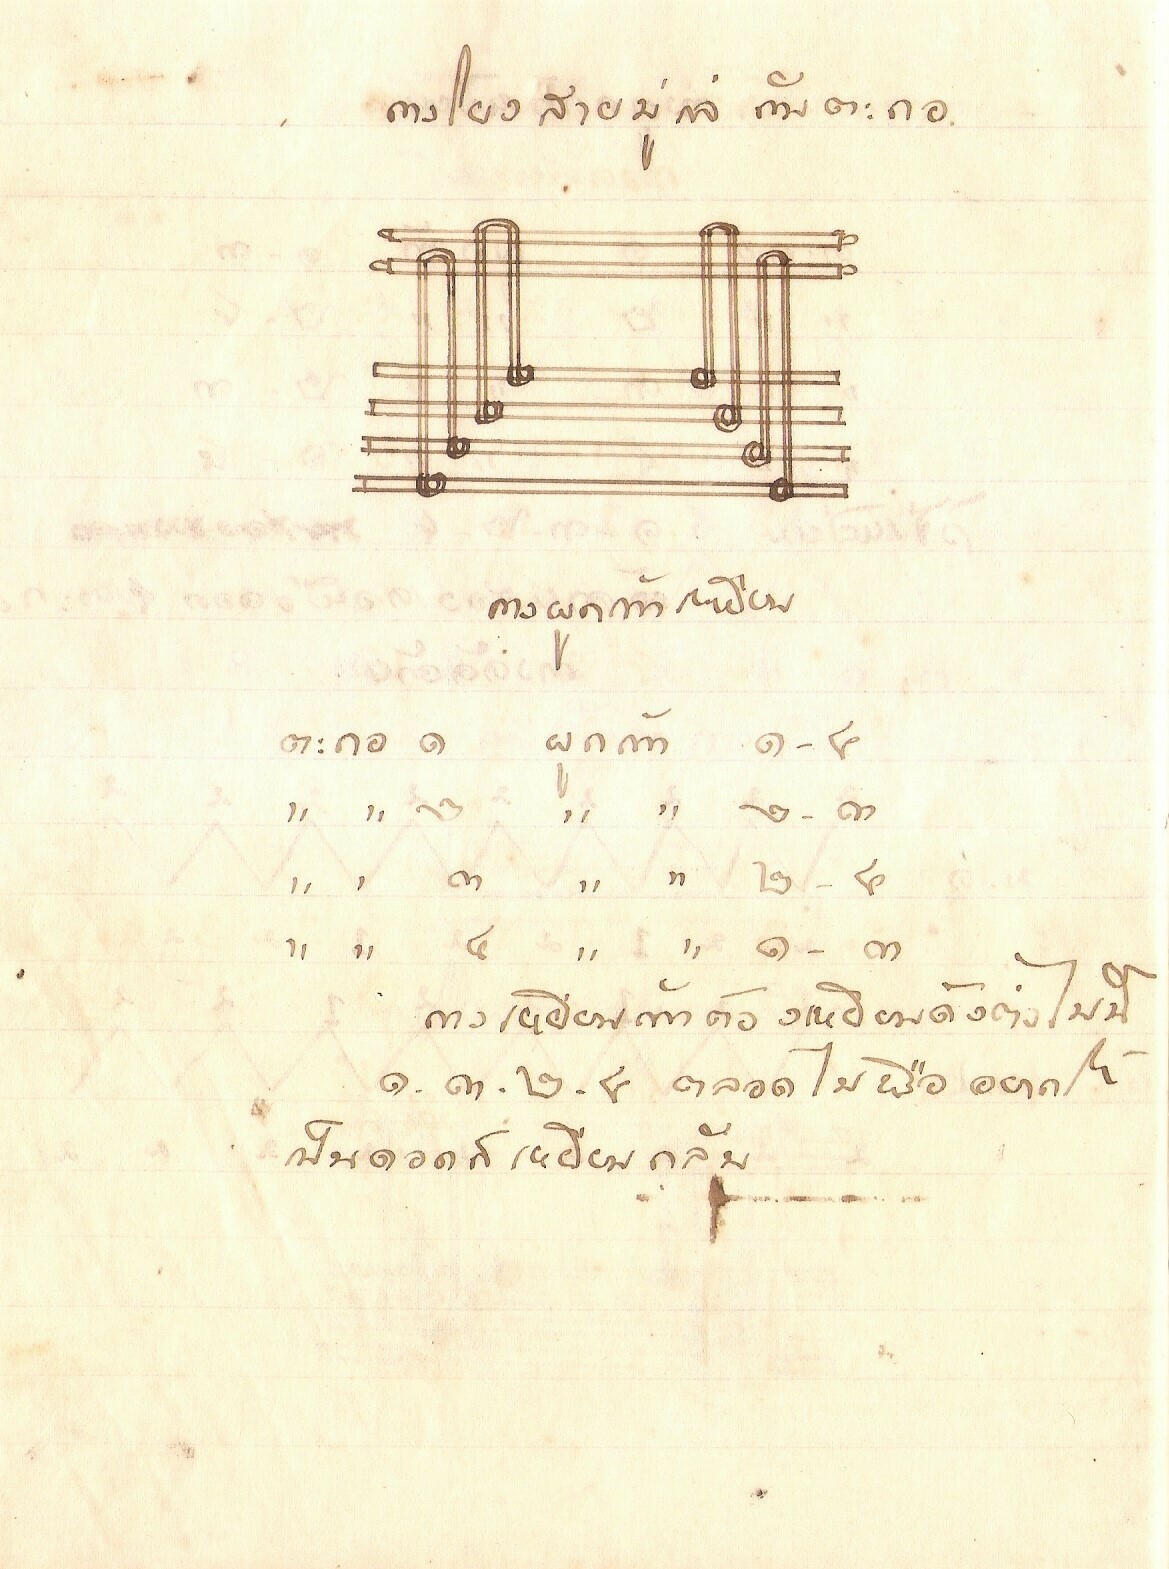 การโยงสายมู่เล่ กับตะกอ.
การผูกเท้าเหยียบ
ตะกอ ๑ ผูกเท้า ๑ - ๔
" " ๒ " " ๒ - ๓
" " ๓ " " ๒ - ๔
" " ๔ " " ๑ - ๓
การเหยียบเท้าต้องเหยียบดังต่อไปนี้
๑ - ๓ - ๒ - ๔ ตลอดไป เมื่ออยากให้
เป็นดอกก็เหยียบกลับ